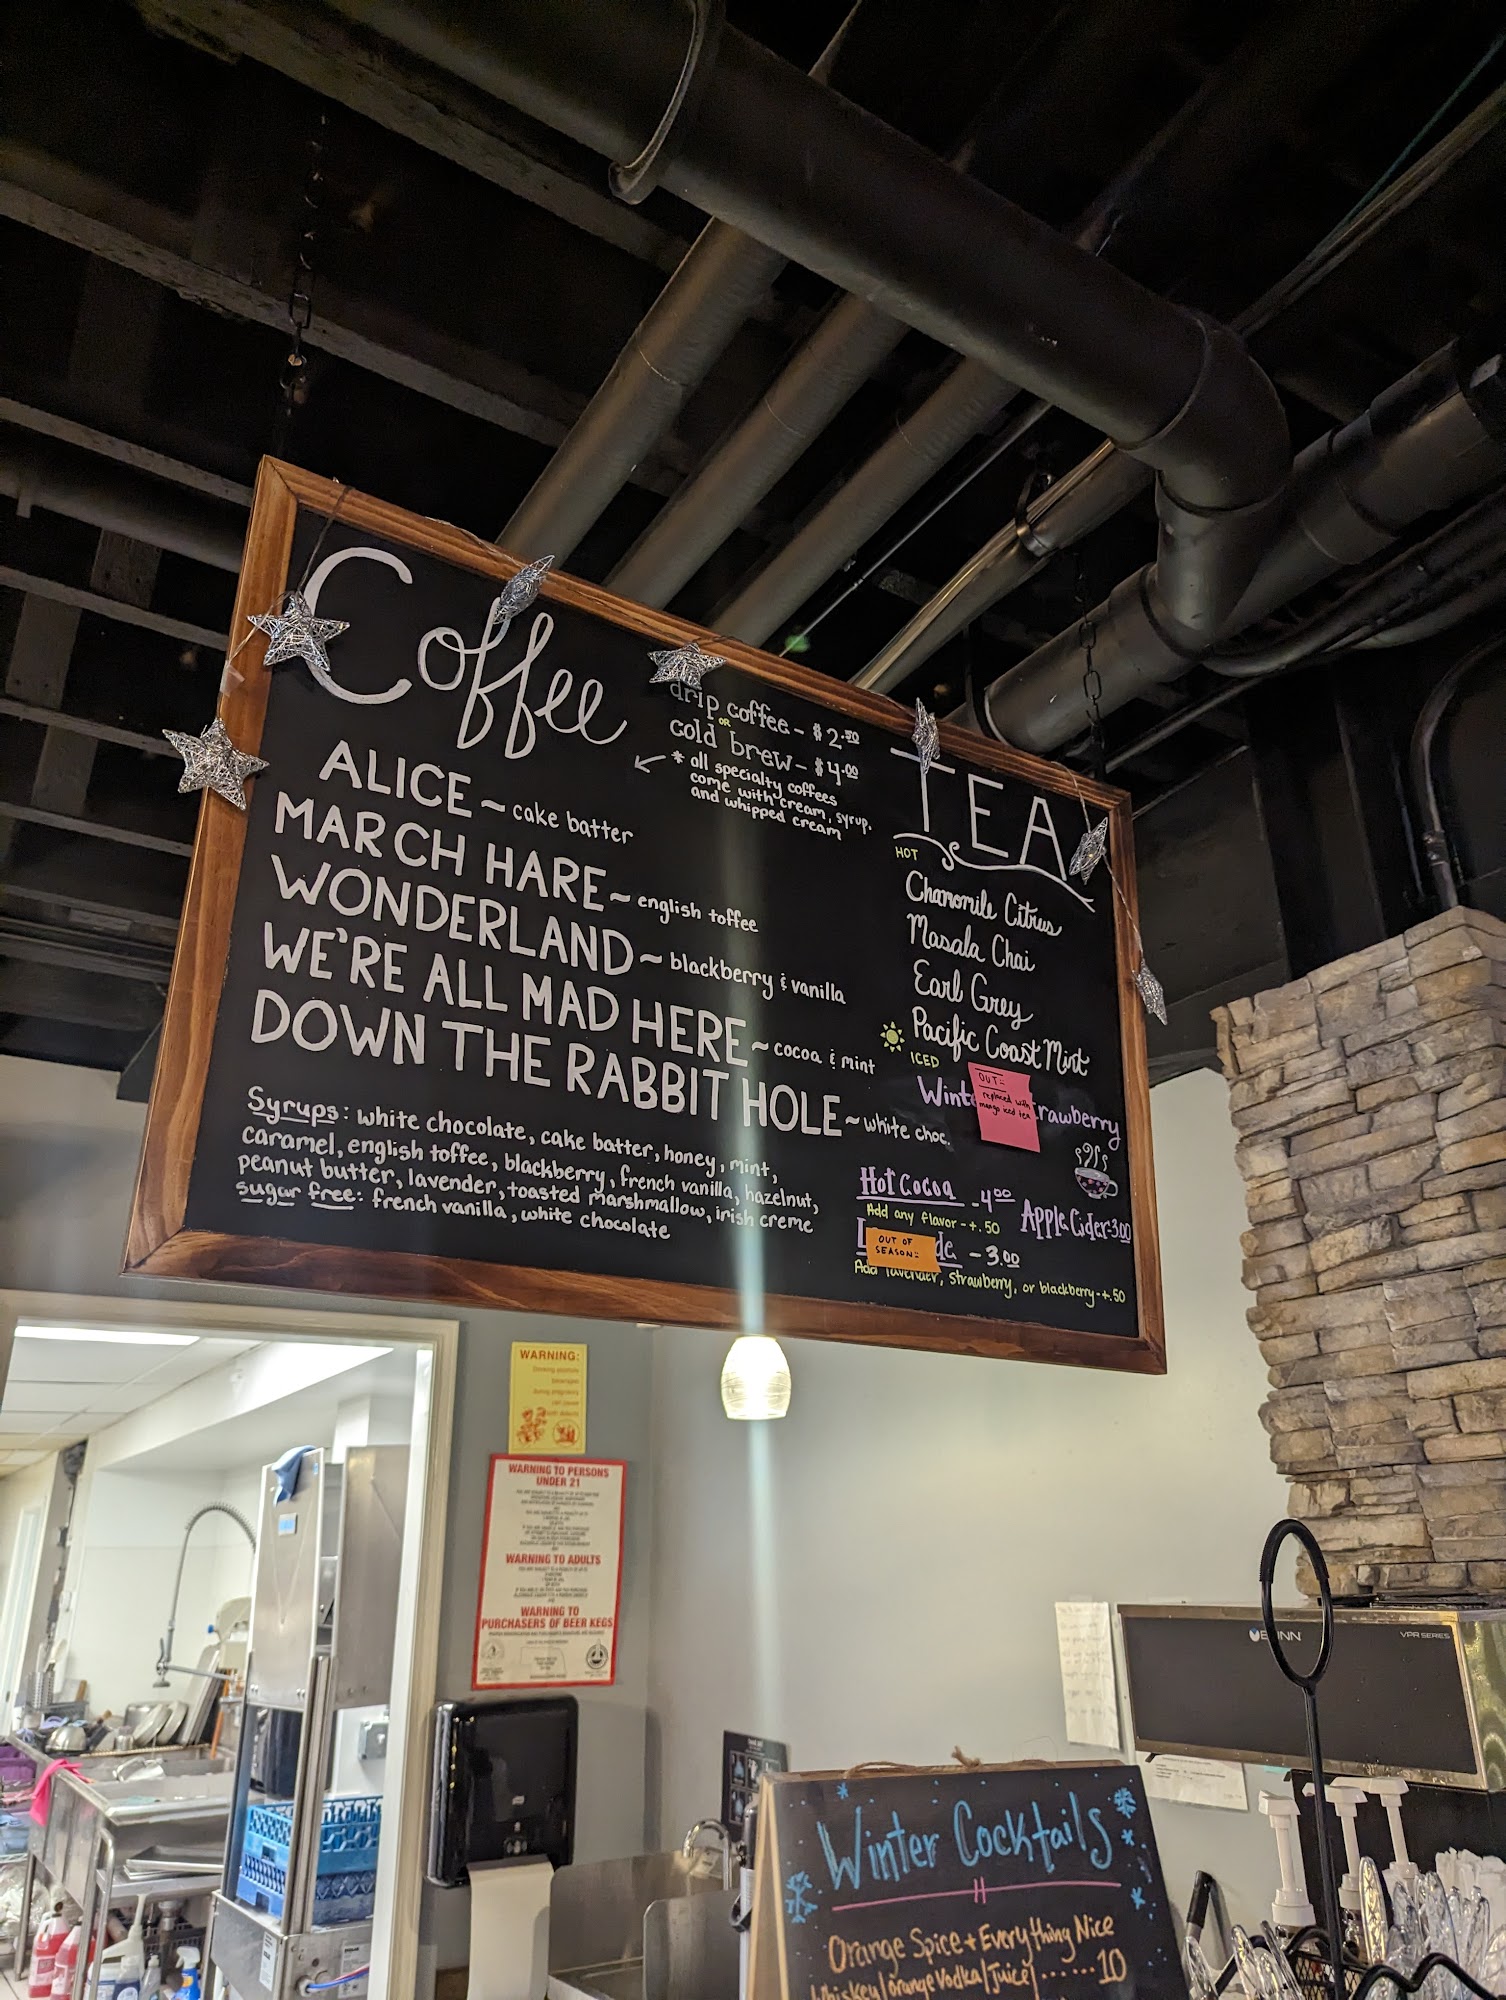 Coffee
drip coffee - $2.50
OR
cold brew - $4.00
* all specialty coffees
come with cream, syrup,
and whipped cream
ALICE ~ cake batter
MARCH HARE ~ english toffee
WONDERLAND ~ blackberry & vanilla
WE'RE ALL MAD HERE ~ cocoa & mint
DOWN THE RABBIT HOLE ~ white choc.
Syrups: white chocolate, cake batter, honey, mint,
caramel, english toffee, blackberry, french vanilla, hazelnut,
peanut butter, lavender, toasted marshmallow, irish creme
sugar free: french vanilla, white chocolate
TEA
HOT
Chamomile Citrus
Masala Chai
Earl Grey
Pacific Coast Mint
ICED
OUT:
replaced with
mango iced tea
Hot Cocoa - 4.00
Add any flavor - +.50
Apple Cider - 3.00
OUT OF
SEASON:
- 3.00
Add lavender, strawberry, or blackberry - +.50
WARNING:
Drinking alcoholic
beverages
during pregnancy
can cause
birth defects
WARNING TO PERSONS
UNDER 21
WARNING TO ADULTS
WARNING TO
PURCHASERS OF BEER KEGS
BUNN
VPR SERIES
Winter Cocktails
Orange Spice + Everything Nice
Whiskey/orange vodka/juice/ ...... 10